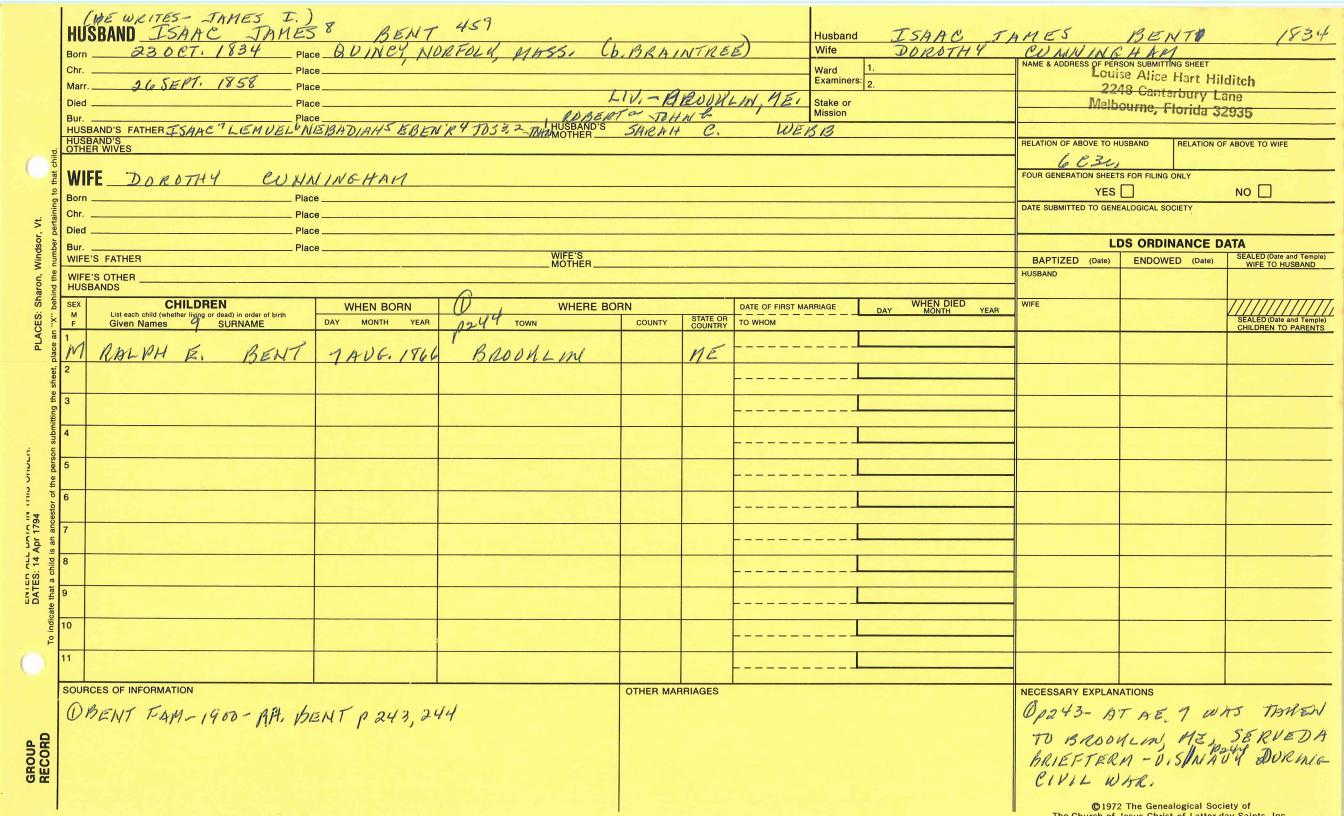 (HE WRITES - JAMES I.)
HUSBAND ISAAC JAMES 8 BENT 459
Born 23 OCT. 1834 Place QUINCY, NORFOLK, MASS. (b. BRAINTREE)
Chr. Place
Marr. 26 SEPT. 1858 Place
Died Place LIV. - BROOKLIN, ME.
Bur. Place ROBERT JOHN
HUSBAND'S FATHER ISAAC 7 LEMUEL 6 NEBADIAH 5 EBEN'R 4 JOS 3,2 HUSBAND'S MOTHER SARAH C. WEBB
HUSBAND'S OTHER WIVES
WIFE DOROTHY CUNNINGHAM
Born Place
Chr. Place
Died Place
Bur. Place
WIFE'S FATHER WIFE'S MOTHER
WIFE'S OTHER HUSBANDS
Husband ISAAC JAMES BENT 1834
Wife DOROTHY CUNNINGHAM
Ward Examiners: 1.
2.
Stake or Mission
NAME & ADDRESS OF PERSON SUBMITTING SHEET
Louise Alice Hart Hilditch
2248 Canterbury Lane
Melbourne, Florida 32935
RELATION OF ABOVE TO HUSBAND RELATION OF ABOVE TO WIFE
6C3R
FOUR GENERATION SHEETS FOR FILING ONLY
YES NO
DATE SUBMITTED TO GENEALOGICAL SOCIETY
LDS ORDINANCE DATA
BAPTIZED (Date) ENDOWED (Date) SEALED (Date and Temple) WIFE TO HUSBAND
HUSBAND
WIFE
SEALED (Date and Temple) CHILDREN TO PARENTS
SEX M F
CHILDREN
List each child (whether living or dead) in order of birth
Given Names 9 SURNAME
WHEN BORN
DAY MONTH YEAR
① p244
WHERE BORN
TOWN COUNTY STATE OR COUNTRY
DATE OF FIRST MARRIAGE
TO WHOM
WHEN DIED
DAY MONTH YEAR
1 M RALPH E. BENT 7 AUG. 1866 BROOKLIN ME
2
3
4
5
6
7
8
9
10
11
SOURCES OF INFORMATION
① BENT FAM - 1900 - BENT p 243, 244
OTHER MARRIAGES
NECESSARY EXPLANATIONS
① p243 - AT AE. 7 WAS TAKEN
TO BROOKLIN, ME, SERVED A
BRIEF TERM - U.S. NAVY p244 DURING
CIVIL WAR.
©1972 The Genealogical Society of
The Church of Jesus Christ of Latter-day Saints, Inc.
PLACES: Sharon, Windsor, Vt.
ENTER ALL DATA IN THIS ORDER:
DATES: 14 Apr 1794
To indicate that a child is an ancestor of the person submitting the sheet, place an "X" behind the number pertaining to that child.
GROUP
RECORD